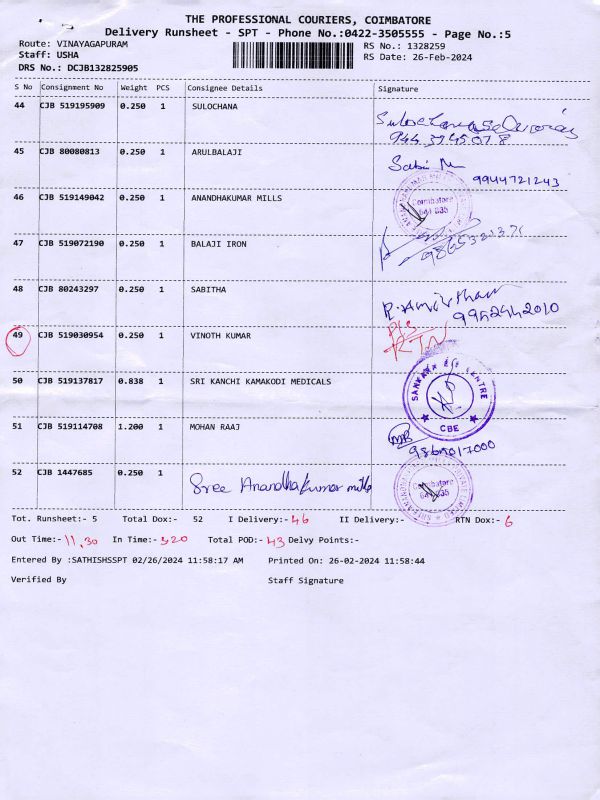 THE PROFESSIONAL COURIERS, COIMBATORE
Delivery Runsheet - SPT - Phone No.:0422-3505555 - Page No.:5
Route: VINAYAGAPURAM
RS No.: 1328259
Staff: USHA
RS Date: 26-Feb-2024
DRS No.: DCJB132825905
S No Consignment No Weight PCS Consignee Details Signature
44 CJB 519195909 0.250 1 SULOCHANA
45 CJB 80080813 0.250 1 ARULBALAJI
9944721243
46 CJB 519149042 0.250 1 ANANDHAKUMAR MILLS
Coimbatore
641 035
47 CJB 519072190 0.250 1 BALAJI IRON
48 CJB 80243297 0.250 1 SABITHA
49 CJB 519030954 0.250 1 VINOTH KUMAR
RTN
50 CJB 519137817 0.838 1 SRI KANCHI KAMAKODI MEDICALS
SANKARA EYE CENTRE
CBE
51 CJB 519114708 1.200 1 MOHAN RAAJ
52 CJB 1447685 0.250 1 Sree Anandhakumar mills
Coimbatore
641 035
Tot. Runsheet:- 5 Total Dox:- 52 I Delivery:- 46 II Delivery:- RTN Dox:- 6
Out Time:- 11.30 In Time:- 320 Total POD:- 43 Delvy Points:-
Entered By :SATHISHSSPT 02/26/2024 11:58:17 AM Printed On: 26-02-2024 11:58:44
Verified By Staff Signature